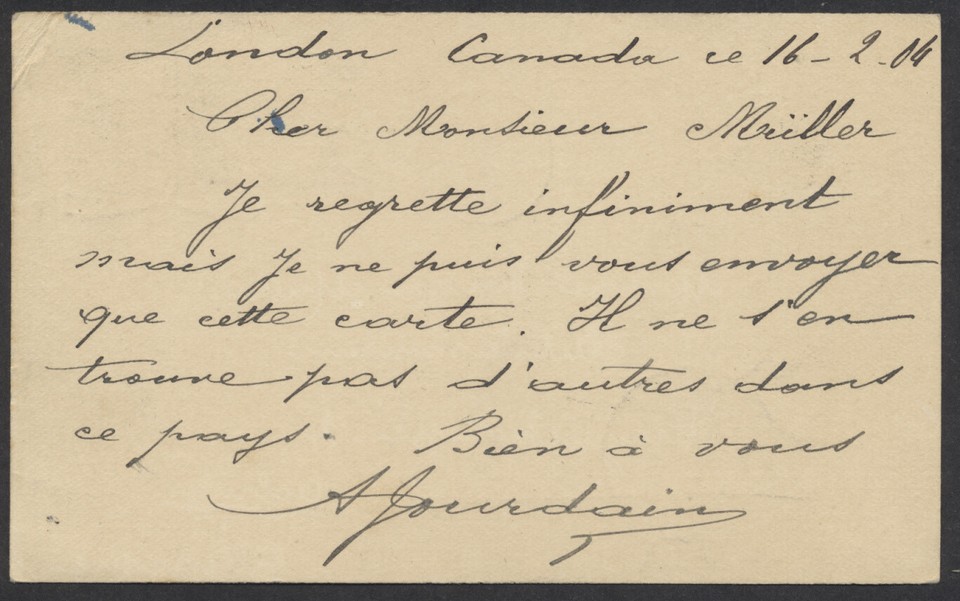 London Canada ce 16-2-04
Cher Monsieur Müller
Je regrette infiniment
mais je ne puis vous envoyer
que cette carte. Il ne s'en
trouve pas d'autres dans
ce pays. Bien à vous
A Jourdain